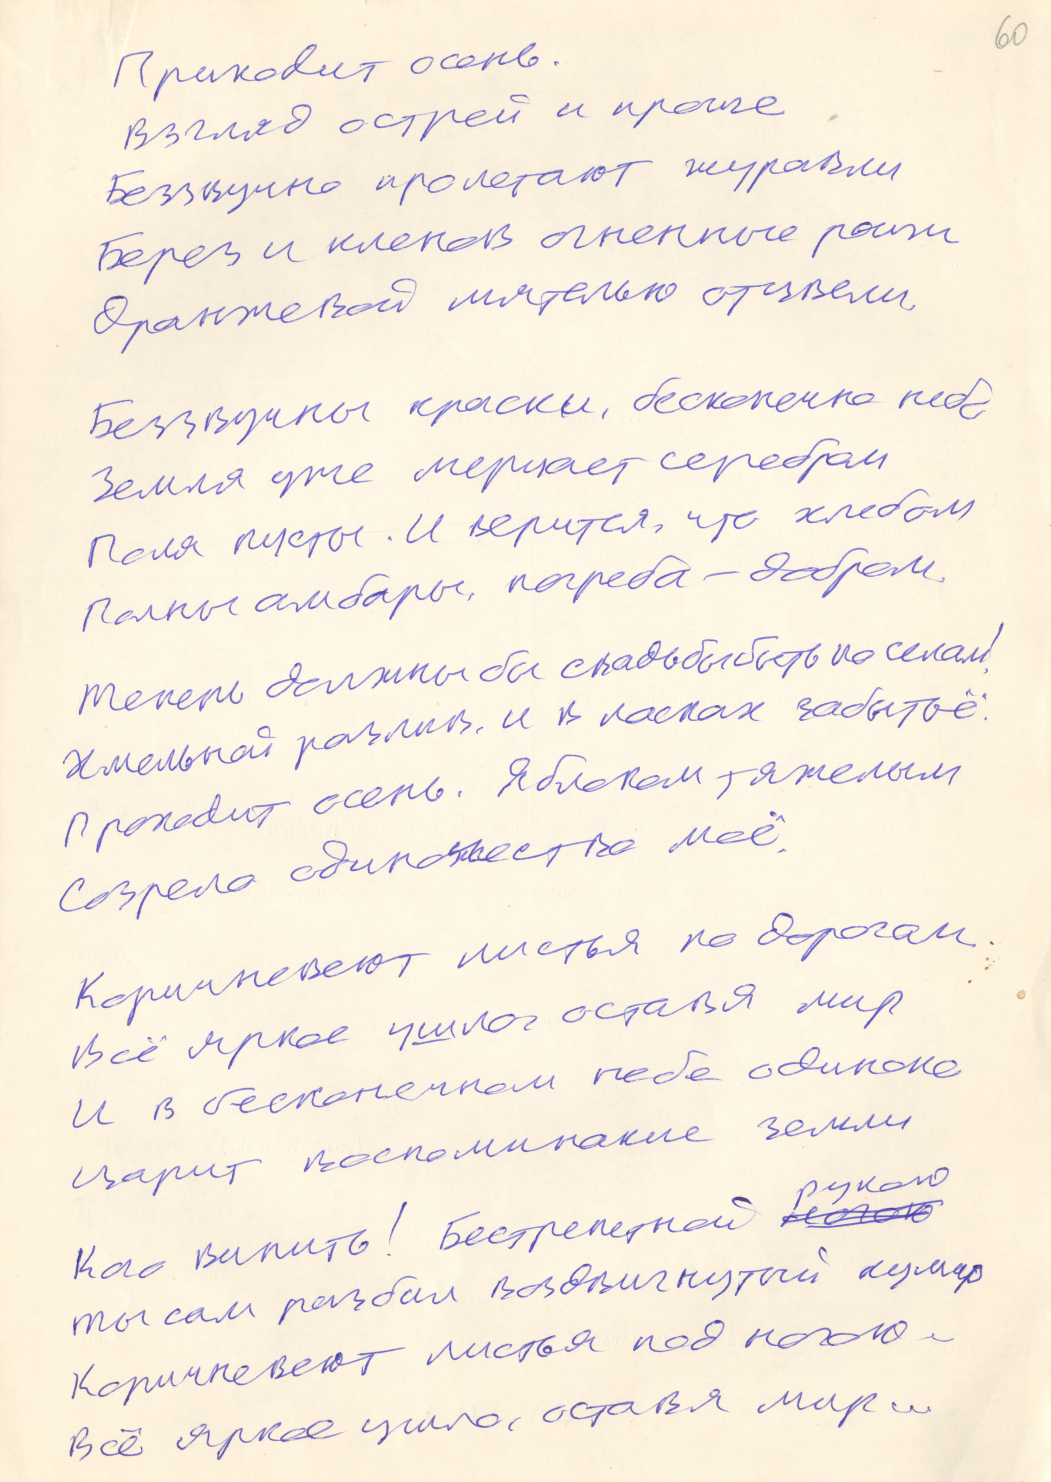 60
Приходит осень.
Взгляд острей и проще
Беззвучно пролетают журавли
Берез и кленов огненные рощи
Оранжевой мятелью отцвели
Беззвучны краски, бесконечно небо
Земля уже мерцает серебром
Поля пусты. И верится, что хлебом
Полны амбары, погреба – добром.
Теперь должны бы свадьбы быть по селам!
Хмельной разлив, и в ласках забытьё.
Проходит осень. Яблоком тяжелым
Созрело одиночество моё.
Коричневеют листья по дорогам.
Всё яркое ушло, оставя мир
И в бесконечном небе одиноко
Царит воспоминание земли
рукою
Кого винить! Бестрепетной ногою
ты сам разбил воздвигнутый кумир
Коричневеют листья под ногою...
Всё яркое ушло, оставя мир...